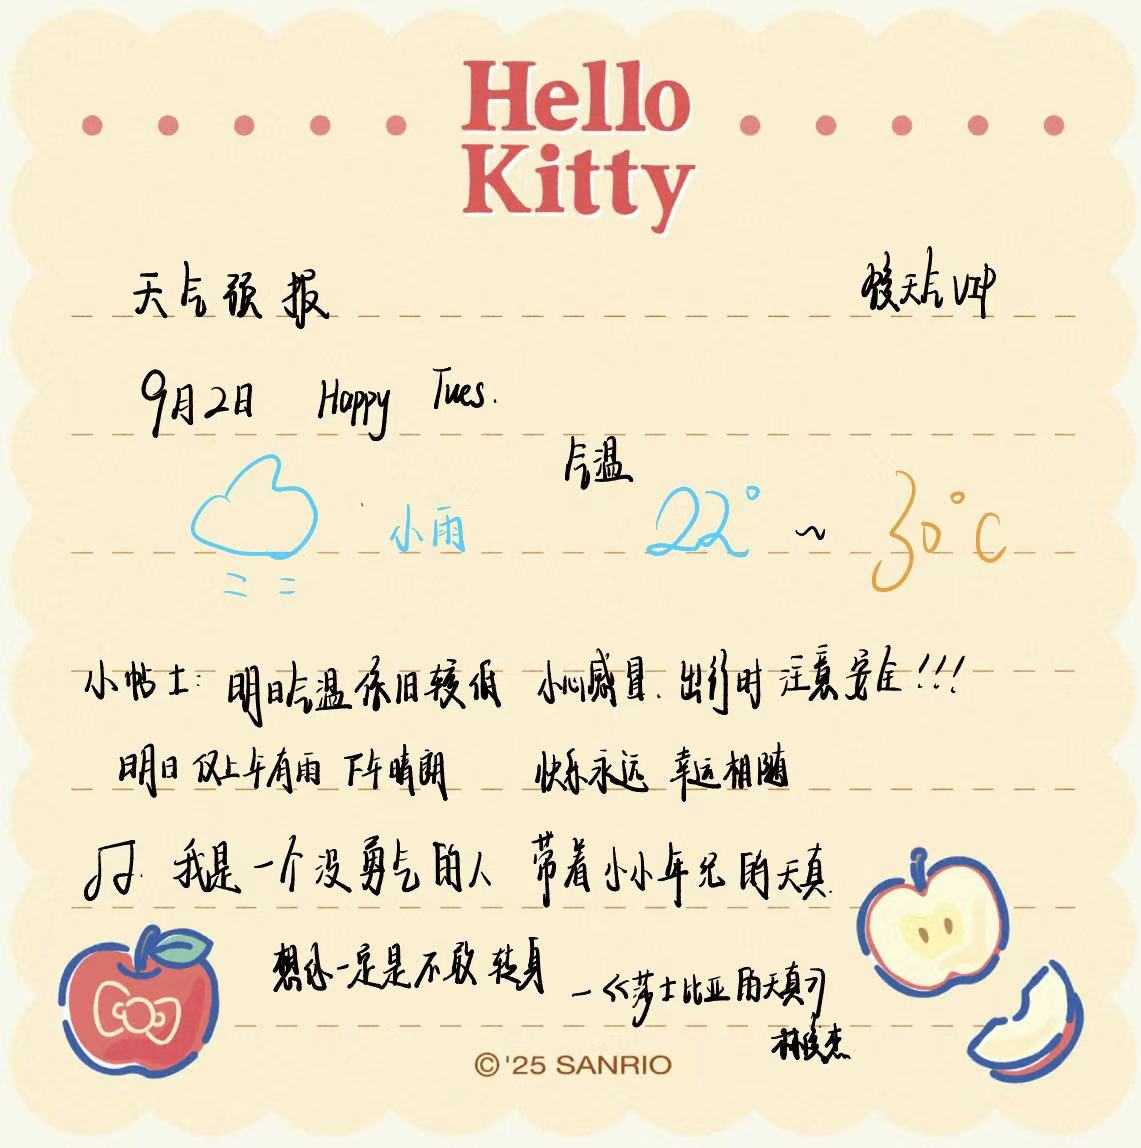 Hello
Kitty
天气预报 天气VIP
9月2日 Happy Tues.
气温
小雨 22° ~ 30°C
小帖士: 明日气温依旧较低 小心感冒. 出行时 注意安全!!!
明日仅上午有雨 下午晴朗 快乐永远 幸运相随
我是一个没勇气的人 带着小小年纪的天真.
想你一定是不敢转身 —《莎士比亚的天真》
林俊杰
© '25 SANRIO